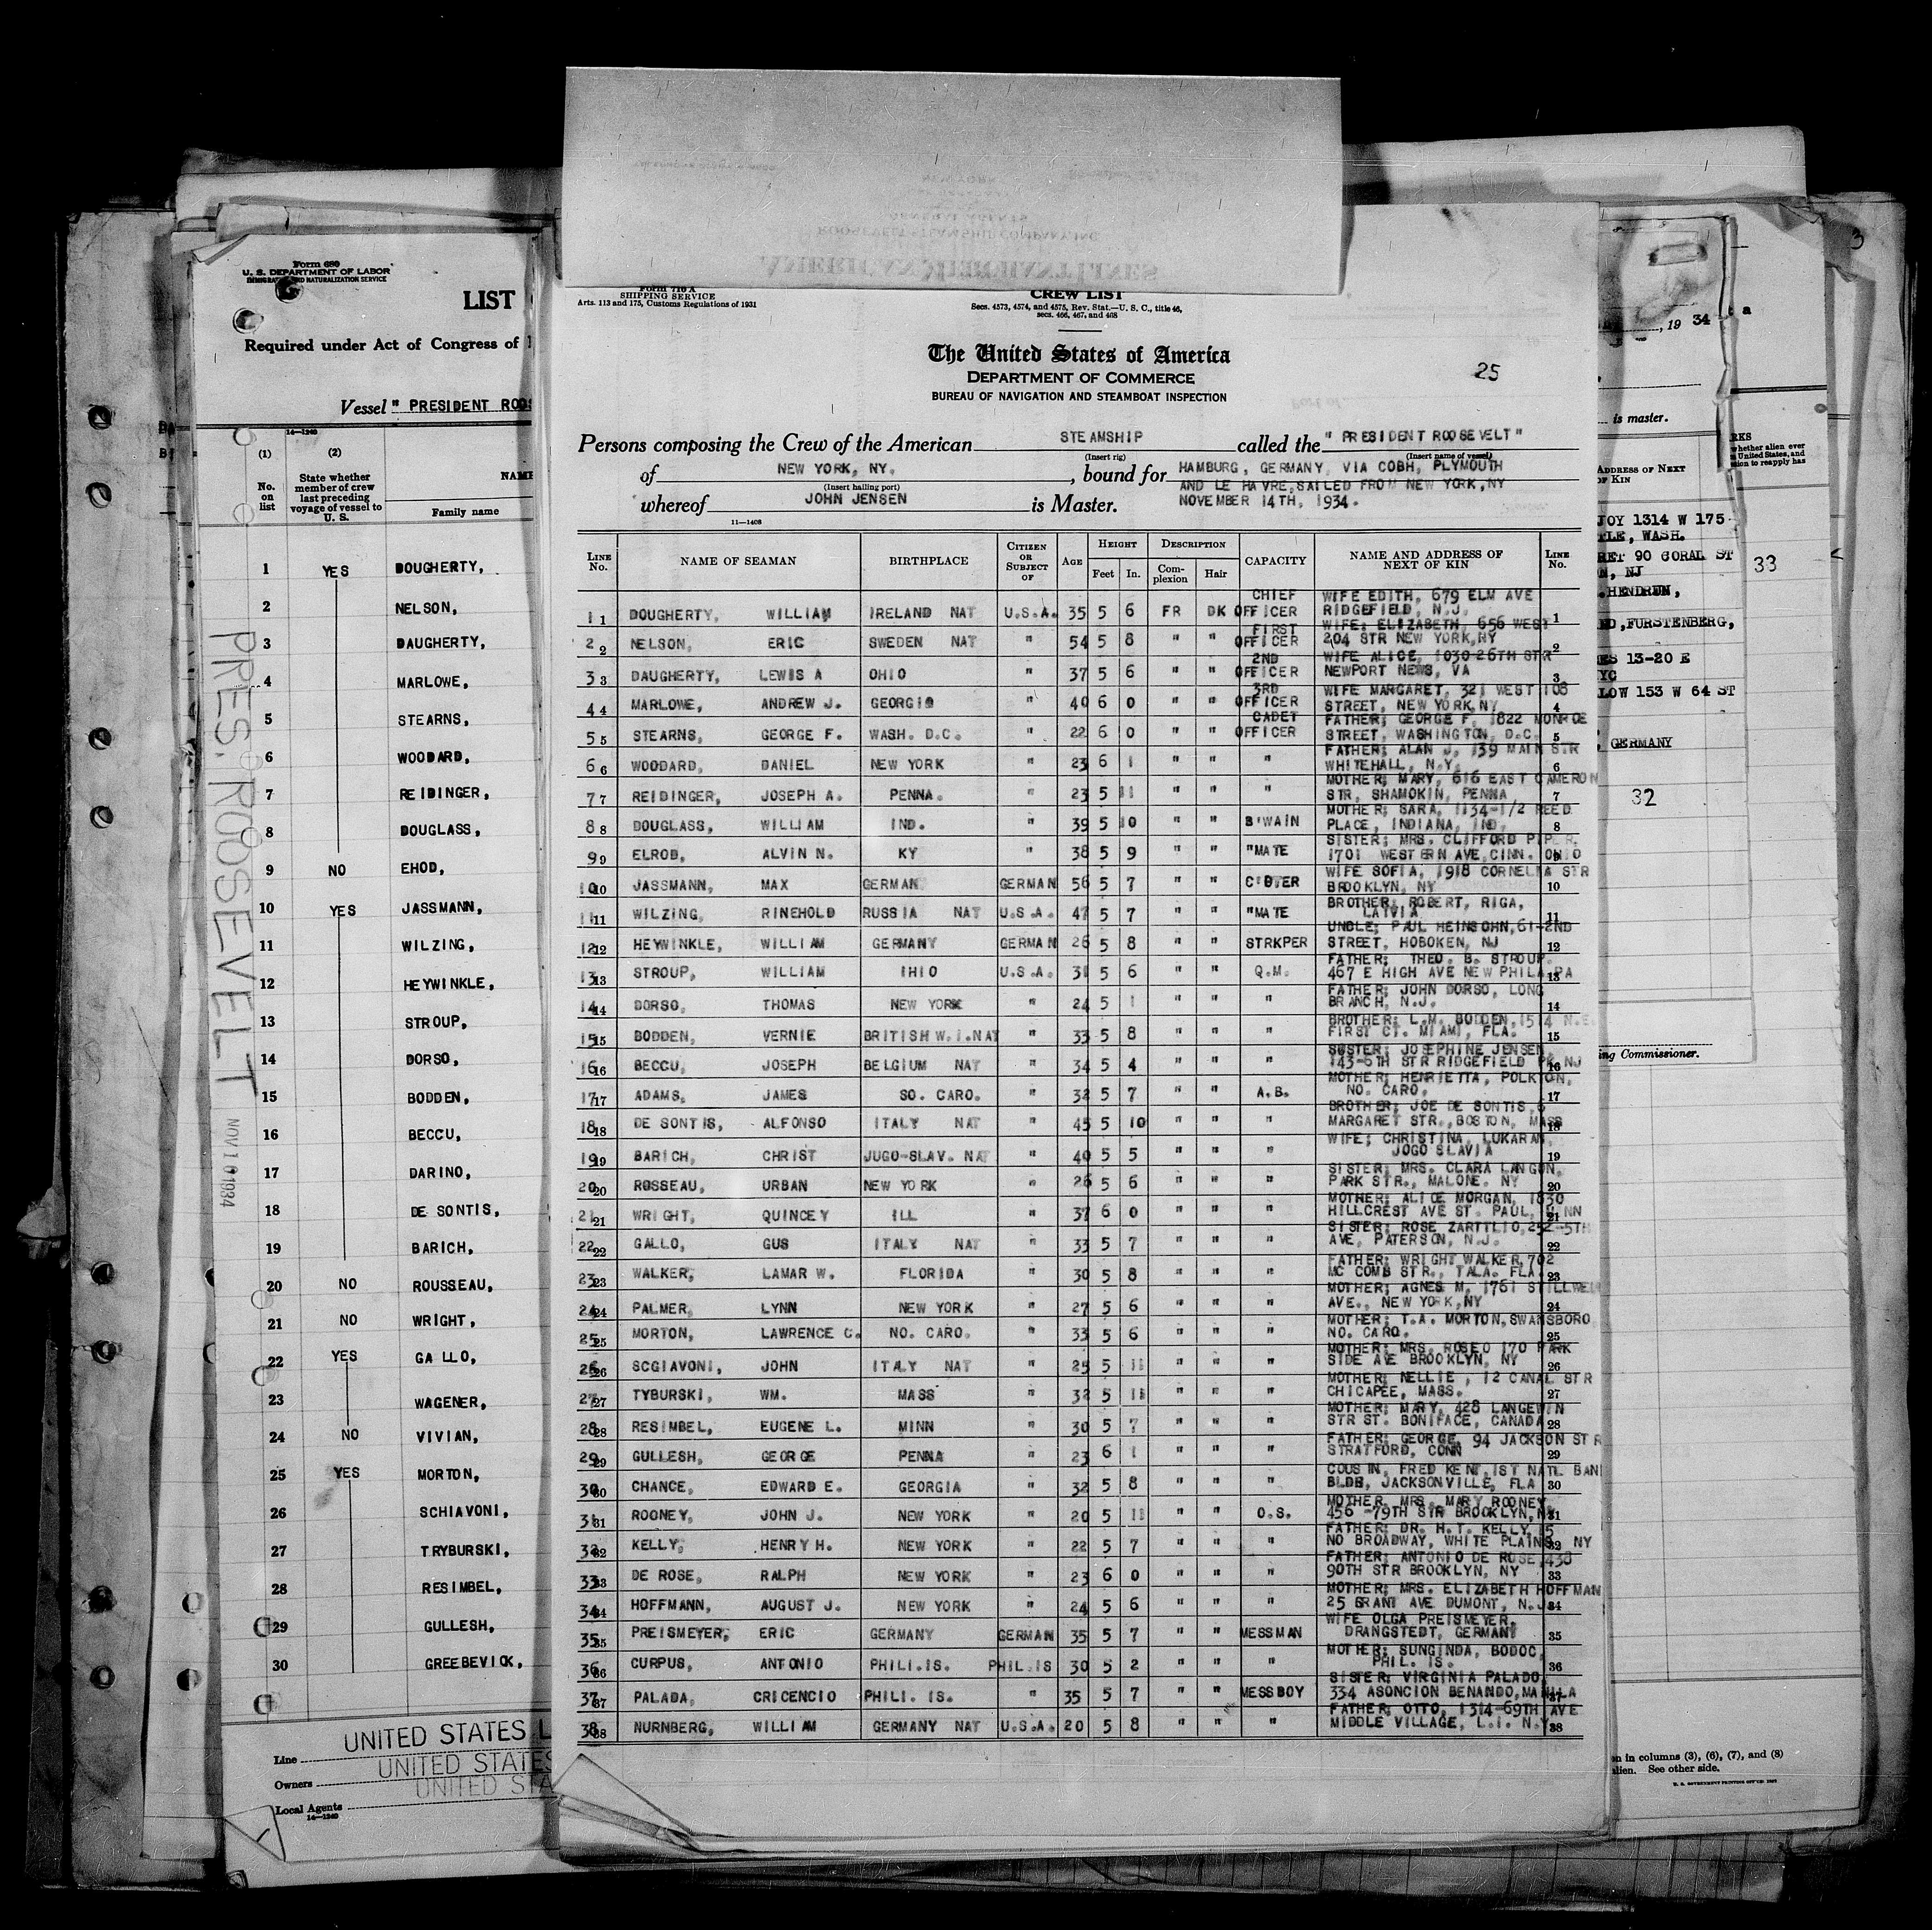 Form 680
U. S. DEPARTMENT OF LABOR
IMMIGRATION AND NATURALIZATION SERVICE
LIST
Required under Act of Congress of
Vessel " PRESIDENT ROOS
14—1240
(1) (2)
No. on list
State whether member of crew last preceding voyage of vessel to U. S.
NAME
Family name
1 YES DOUGHERTY,
2 NELSON,
3 DAUGHERTY,
4 MARLOWE,
5 STEARNS,
6 WOODARD,
7 REIDINGER,
8 DOUGLASS,
9 NO EHOD,
10 YES JASSMANN,
11 WILZING,
12 HEYWINKLE,
13 STROUP,
14 DORSO,
15 BODDEN,
16 BECCU,
17 DARINO,
18 DE SONTIS,
19 BARICH,
20 NO ROUSSEAU,
21 NO WRIGHT,
22 YES GALLO,
23 WAGENER,
24 NO VIVIAN,
25 YES MORTON,
26 SCHIAVONI,
27 TRYBURSKI,
28 RESIMBEL,
29 GULLESH,
30 GREEBEVICK,
PRES. ROOSEVELT
NOV 10 1934
Line UNITED STATES L
Owners UNITED STATES
Local Agents UNITED STA
14—1240
Form 710 A
SHIPPING SERVICE
Arts. 113 and 175, Customs Regulations of 1931
CREW LIST
Secs. 4573, 4574, and 4575, Rev. Stat.—U. S. C., title 46,
secs. 466, 467, and 468
The United States of America
DEPARTMENT OF COMMERCE
BUREAU OF NAVIGATION AND STEAMBOAT INSPECTION
25
Persons composing the Crew of the American STEAMSHIP called the " PRESIDENT ROOSEVELT "
(Insert rig) (Insert name of vessel)
of NEW YORK, NY. , bound for HAMBURG, GERMANY, VIA COBH, PLYMOUTH
(Insert hailing port)
AND LE HAVRE, SAILED FROM NEW YORK, NY
whereof JOHN JENSEN is Master. NOVEMBER 14TH, 1934.
11—1408
LINE No. NAME OF SEAMAN BIRTHPLACE CITIZEN OR SUBJECT OF AGE HEIGHT Feet In. DESCRIPTION Complexion Hair CAPACITY NAME AND ADDRESS OF NEXT OF KIN LINE No.
1 1 DOUGHERTY, WILLIAM IRELAND NAT U.S.A. 35 5 6 FR DK CHIEF OFFICER WIFE EDITH, 679 ELM AVE RIDGEFIELD, N.J. 1
2 2 NELSON, ERIC SWEDEN NAT " 54 5 8 " " FIRST OFFICER WIFE: ELIZABETH, 656 WEST 204 STR NEW YORK, NY 2
3 3 DAUGHERTY, LEWIS A OHIO " 37 5 6 " " 2ND OFFICER WIFE ALICE, 1030-26TH STR NEWPORT NEWS, VA 3
4 4 MARLOWE, ANDREW J. GEORGIA " 40 6 0 " " 3RD OFFICER WIFE MARGARET, 321 WEST 108 STREET, NEW YORK, NY 4
5 5 STEARNS, GEORGE F. WASH. D.C. " 22 6 0 " " CADET OFFICER FATHER; GEORGE F, 1822 MONROE STREET, WASHINGTON, D.C. 5
6 6 WOODARD, DANIEL NEW YORK " 23 6 1 " " " FATHER; ALAN J, 139 MAIN STR WHITEHALL, N.Y. 6
7 7 REIDINGER, JOSEPH A. PENNA. " 23 5 11 " " " MOTHER; MARY, 616 EAST CAMERON STR, SHAMOKIN, PENNA 7
8 8 DOUGLASS, WILLIAM IND. " 39 5 10 " " B'WAIN MOTHER; SARA, 1134-1/2 REED PLACE, INDIANA, IND. 8
9 9 ELROD, ALVIN N. KY " 38 5 9 " " "MATE SISTER; MRS. CLIFFORD PIPER, 1701 WESTERN AVE, CINN. OHIO 9
10 10 JASSMANN, MAX GERMAN GERMAN 56 5 7 " " WIFE SOFIA, 1918 CORNELIA STR BROOKLYN, NY 10
11 11 WILZING, RINEHOLD RUSSIA NAT U.S.A. 47 5 7 " " "MATE BROTHER; ROBERT, RIGA, LATVIA 11
12 12 HEYWINKLE, WILLIAM GERMANY GERMAN 26 5 8 " " STRKPER UNBLE; PAUL HEINSOHN, 61-2ND STREET, HOBOKEN, NJ 12
13 13 STROUP, WILLIAM IHIO U.S.A. 31 5 6 " " Q.M. FATHER; THEO. B. STROUP. 467 E HIGH AVE NEW PHILA, PA 13
14 14 DORSO, THOMAS NEW YORK " 24 5 1 " " " FATHER; JOHN DORSO, LONG BRANCH, N.J. 14
15 15 BODDEN, VERNIE BRITISH W.I.NAT " 33 5 8 " " " BROTHER; L.M. BODDEN, 1514 N.E. FIRST CT. MIAMI, FLA. 15
16 16 BECCU, JOSEPH BELGIUM NAT " 34 5 4 " " " SUSTER; JOSEPHINE JENSEN, 143-6TH STR RIDGEFIELD PK, NJ 16
17 17 ADAMS, JAMES SO. CARO. " 32 5 7 " " A.B. MOTHER; HENRIETTA, POLKTON, NO. CARO. 17
18 18 DE SONTIS, ALFONSO ITALY NAT " 45 5 10 " " " BROTHER; JOE DE SONTIS, 6 MARGARET STR., BOSTON, MASS 18
19 19 BARICH, CHRIST JUGO-SLAV. NAT " 40 5 5 " " " WIFE; CHRISTINA, LUKARAN, JOGO SLAVIA 19
20 20 ROSSEAU, URBAN NEW YORK " 26 5 6 " " " SISTER; MRS. CLARA LANGON, PARK STR., MALONE. NY 20
21 21 WRIGHT, QUINCEY ILL " 37 6 0 " " " MOTHER; ALICE MORGAN, 1830 HILLCREST AVE ST. PAUL, MINN 21
22 22 GALLO, GUS ITALY NAT " 33 5 7 " " " SISTER; ROSE ZARTTLIO, 252-5TH AVE, PATERSON, N.J. 22
23 23 WALKER, LAMAR W. FLORIDA " 30 5 8 " " " FATHER; WRIGHT WALKER, 702 MC COMB STR., TALA. FLA. 23
24 24 PALMER, LYNN NEW YORK " 27 5 6 " " " MOTHER; AGNES M. 1761 STILLWELL AVE., NEW YORK, NY 24
25 25 MORTON, LAWRENCE C. NO. CARO. " 33 5 6 " " " MOTHER; T.A. MORTON, SWANSBORO NO. CARO. 25
26 26 SCGIAVONI, JOHN ITALY NAT " 25 5 11 " " " MOTHER; MRS. ROSEO 170 PARK SIDE AVE BROOKLYN, NY 26
27 27 TYBURSKI, WM. MASS " 32 5 11 " " " MOTHER; NELLIE, 12 CANAL STR CHICAPEE, MASS. 27
28 28 RESIMBEL, EUGENE L. MINN " 30 5 7 " " " MOTHER; MARY, 428 LANGEWIN STR ST. BONIFACE, CANADA 28
29 29 GULLESH, GEORGE PENNA " 23 6 1 " " " FATHER; GEORGE, 94 JACKSON STR STRATFORD, CONN 29
30 30 CHANCE, EDWARD E. GEORGIA " 32 5 8 " " " COUSIN, FRED KENT, 1ST NATL BAN BLDB, JACKSONVILLE, FLA 30
31 31 ROONEY, JOHN J. NEW YORK " 20 5 11 " " O.S. MOTHER, MRS. MARY ROONEY, 456 -79TH STR BROOKLYN, NY 31
32 32 KELLY, HENRY H. NEW YORK " 22 5 7 " " " FATHER; DR. H.T. KELLY, 15 NO BROADWAY, WHITE PLAINS, NY 32
33 33 DE ROSE, RALPH NEW YORK " 23 6 0 " " " FATHER; ANTONIO DE ROSE, 430 90TH STR BROOKLYN, NY 33
34 34 HOFFMANN, AUGUST J. NEW YORK " 24 5 6 " " " MOTHER; MRS. ELIZABETH HOFFMAN 25 GRANT AVE DUMONT, N.J. 34
35 35 PREISMEYER, ERIC GERMANY GERMAN 35 5 7 " " MESSMAN WIFE OLGA PREISMEYER, DRANGSTEDT, GERMANY 35
36 36 CURPUS, ANTONIO PHILI.IS. PHIL.IS 30 5 2 " " " MOTHER; SUNGINDA, BODOC, PHIL. IS. 36
37 37 PALADA, CRICENCIO PHILI. IS. " 35 5 7 " " MESSBOY SISTER; VIRGINIA PALADO, 334 ASONCION BENANDO, MANILA 37
38 38 NURNBERG, WILLIAM GERMANY NAT U.S.A. 20 5 8 " " " FATHER; OTTO, 1314-69TH AVE MIDDLE VILLAGE, L.I. N.Y. 38
3
, 19 34 a
is master.
RKS
whether alien ever
United States, and
sion to reapply has
ADDRESS OF NEXT
OF KIN
JOY 1314 W 175
TLE, WASH.
RET 90 CORAL ST
N, NJ
33
.HENDRUN,
ND, FURSTENBERG,
ES 13-20 E
NYC
LOW 153 W 64 ST
GERMANY
32
ing Commissioner.
en in columns (3), (6), (7), and (8)
alien. See other side.
U. S. GOVERNMENT PRINTING OFFICE